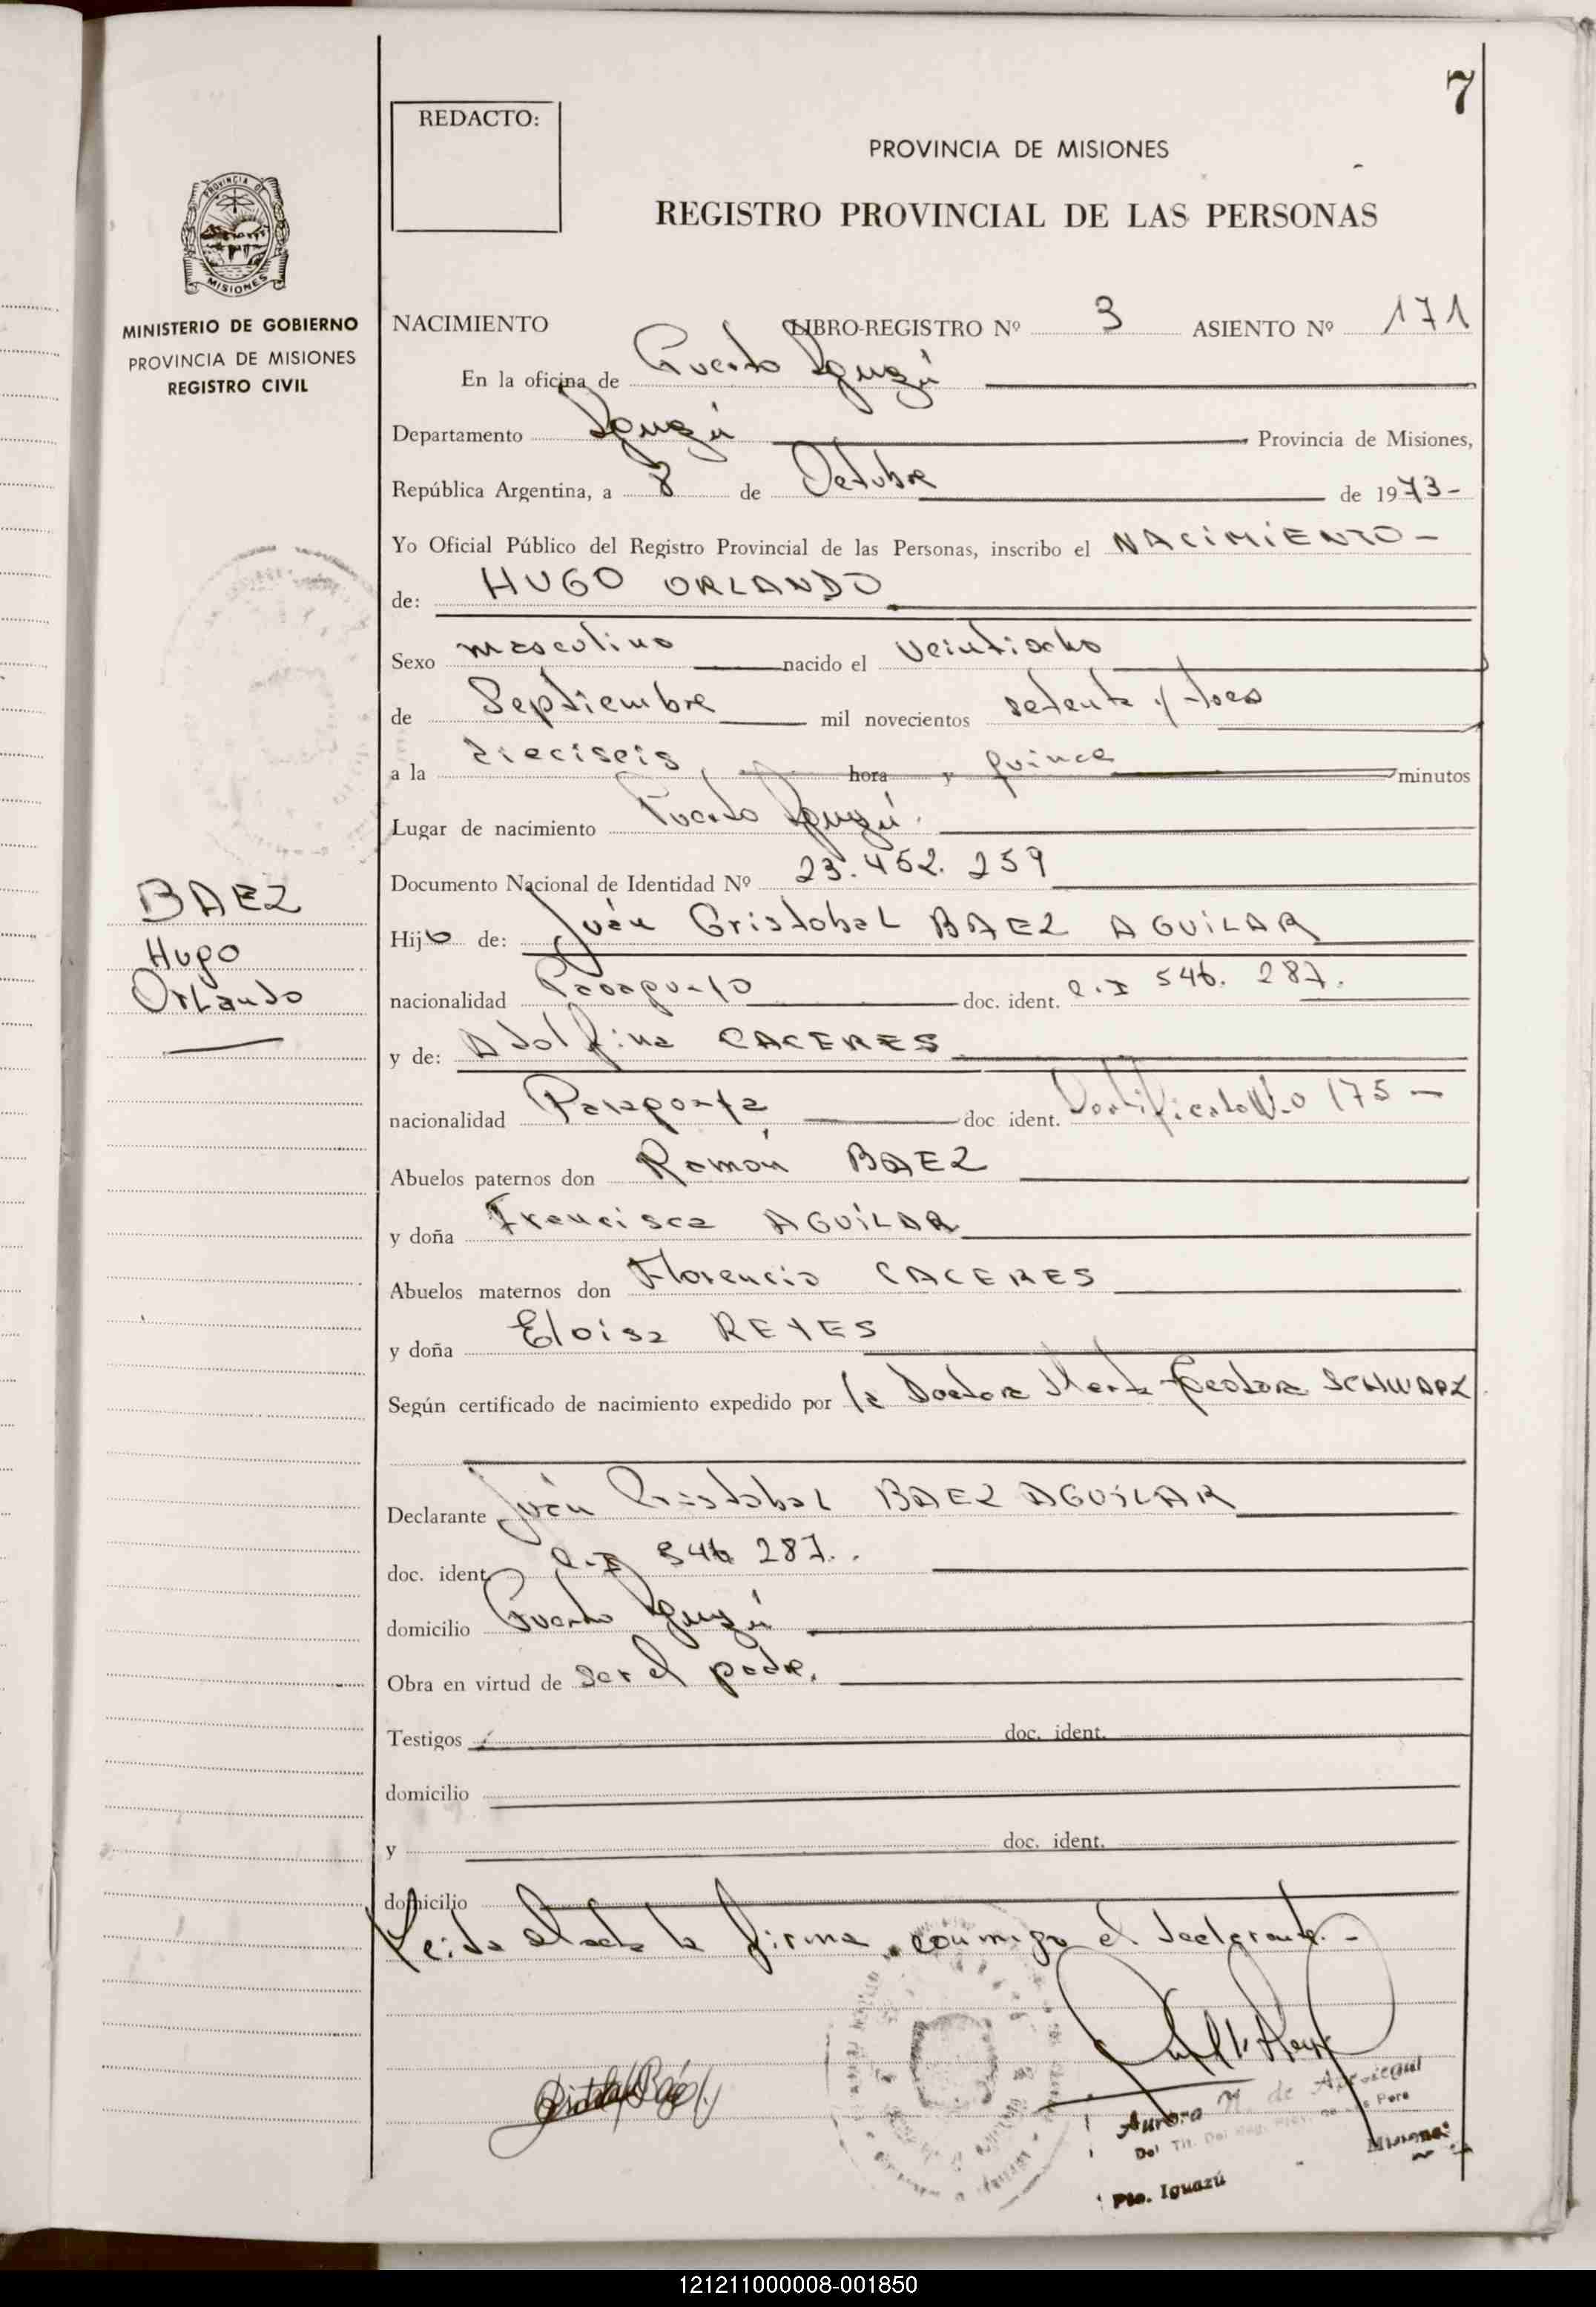 7
REDACTO:
PROVINCIA DE MISIONES
REGISTRO PROVINCIAL DE LAS PERSONAS
PROVINCIA DE
MISIONES
MINISTERIO DE GOBIERNO
PROVINCIA DE MISIONES
REGISTRO CIVIL
NACIMIENTO LIBRO-REGISTRO Nº 3 ASIENTO Nº 171
En la oficina de Puerto Iguazú
Departamento Iguazú Provincia de Misiones,
República Argentina, a 8 de Octubre de 1973-
Yo Oficial Público del Registro Provincial de las Personas, inscribo el NACIMIENTO-
de: HUGO ORLANDO
Sexo masculino nacido el veintiocho
de Septiembre mil novecientos setenta y tres
a la dieciseis hora y quince minutos
Lugar de nacimiento Puerto Iguazú.
Documento Nacional de Identidad Nº 23.452.259
BAEZ
Hugo
Orlando
Hijo de: Juán Cristobal BAEZ AGUILAR
nacionalidad Paraguayo doc. ident. C.I 546.287.
y de: Adolfina CACERES
nacionalidad Paraguaya doc ident. Certificado N.o 175-
Abuelos paternos don Ramón BAEZ
y doña Francisca AGUILAR
Abuelos maternos don Florencio CACERES
y doña Eloisa REYES
Según certificado de nacimiento expedido por la Doctora Marta Teodora SCHWARZ
Declarante Juán Cristobal BAEZ AGUILAR
doc. ident. C.I 546 287..
domicilio Puerto Iguazú
Obra en virtud de ser el padre.
Testigos doc. ident.
domicilio
y doc. ident.
domicilio
Leida el acta la firma conmigo el declarante.-
Aurora M. de
Pto. Iguazú
Misiones
121211000008-001850